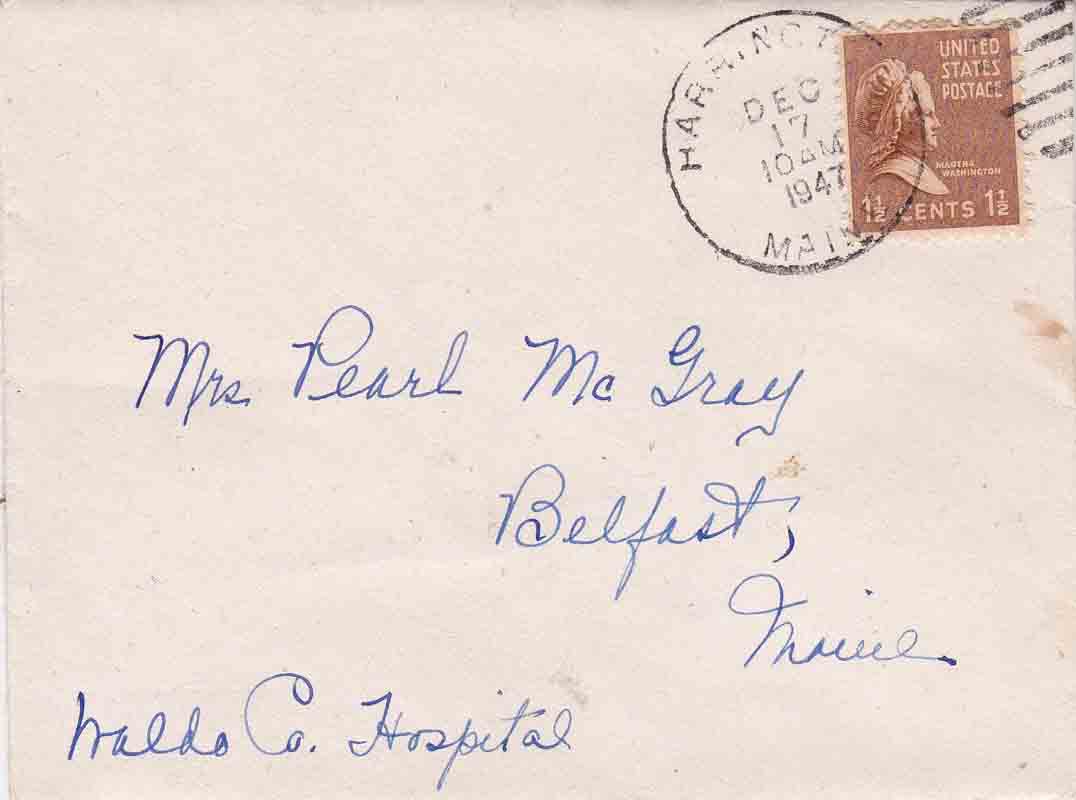 HARRINGT
DEC
17
10 AM
1947
MAIN
UNITED
STATES
POSTAGE
MARTHA
WASHINGTON
1½ CENTS 1½
Mrs. Pearl Mc Gray
Belfast,
Maine.
Waldo Co. Hospital